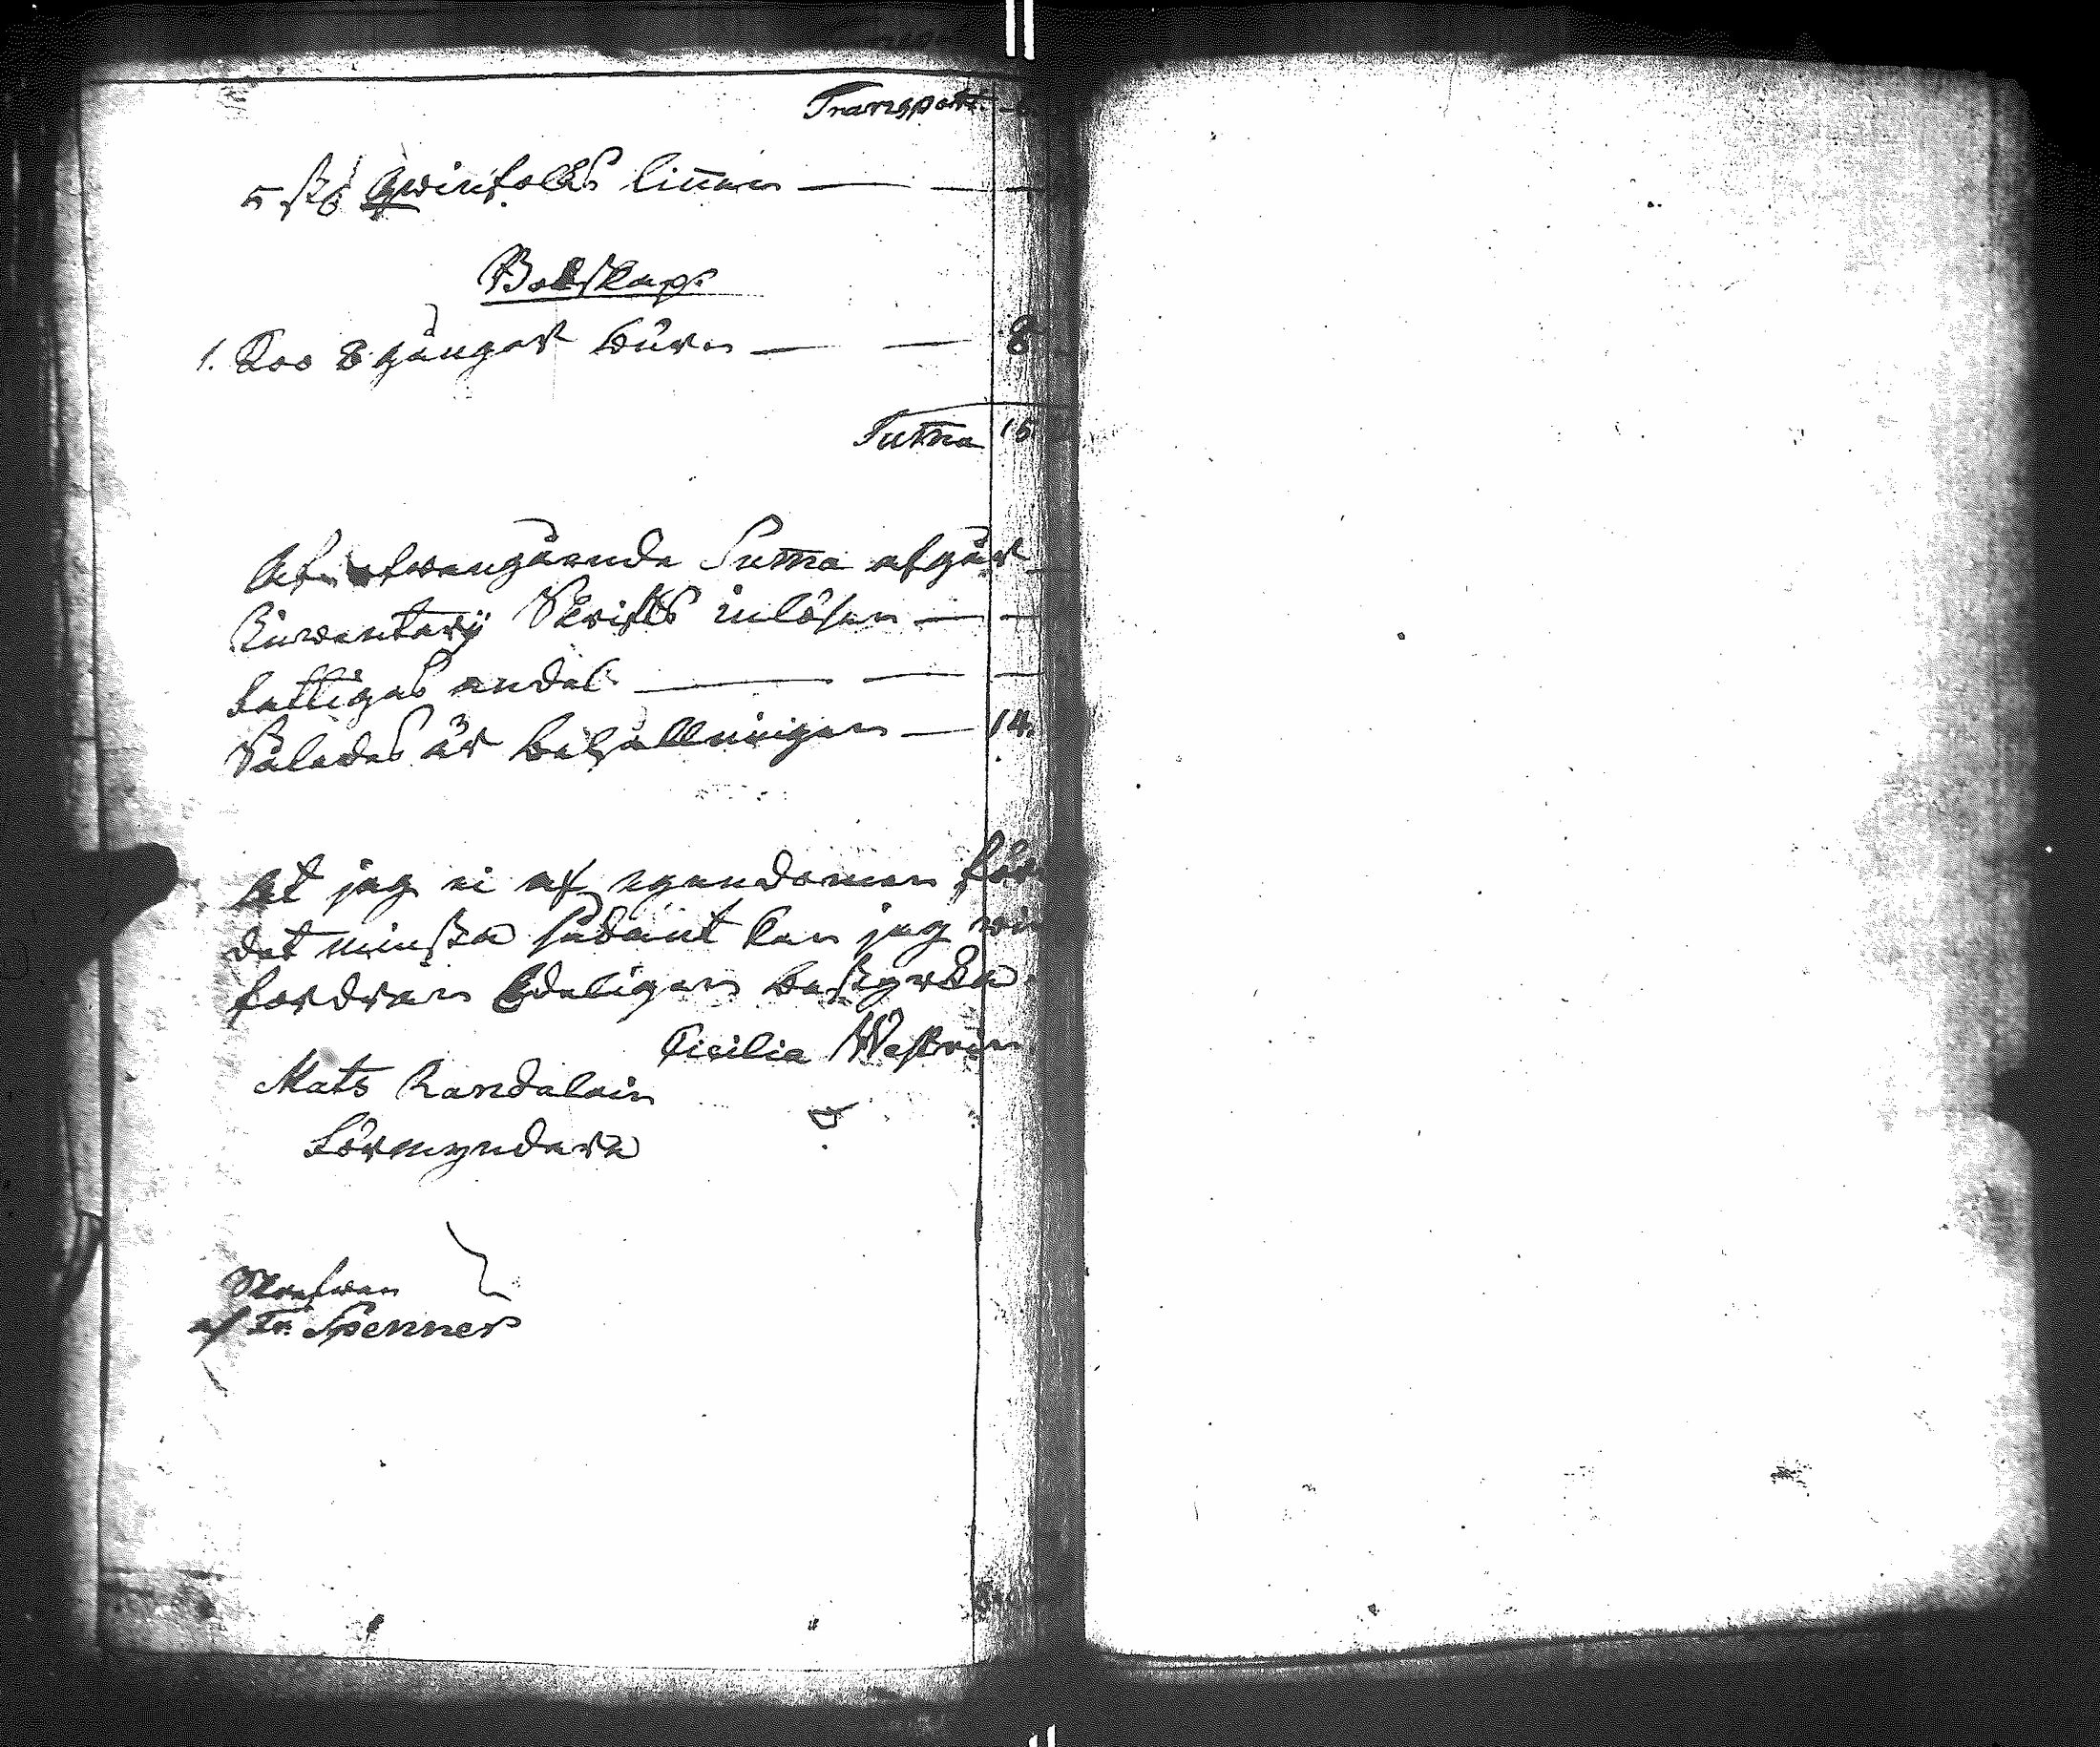 Transport.
5 st. Qwinfolks linnen
Boskap.
1. Koo 8 gånger buren 8
Summa 15
Af ofwangående Summa afgår
Inwentarij Skrifts inlösen
fattigas andel
Således är behållningen 14.
At jag ei af egendomen
det minsta sådant kan jag
fordran Edeligen bestyrka.
Cicilia
Mats Randalain
Förmyndare
Skrefwen
af Tr. Spenner